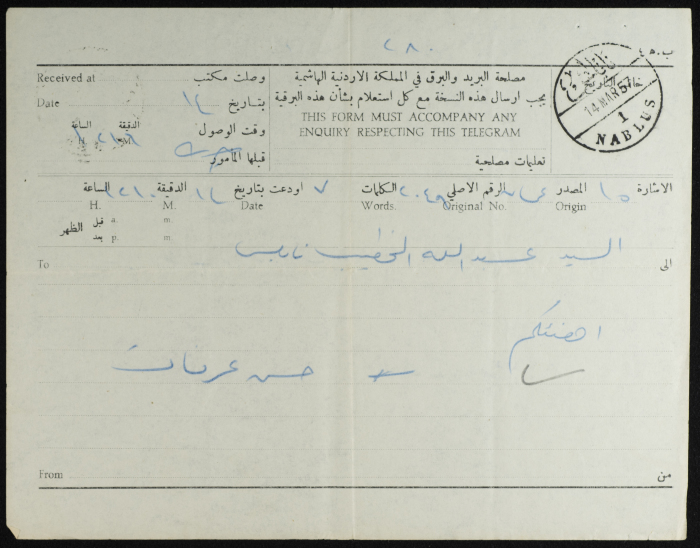 ٢٨٠
ب. ه ٤
Received at وصلت مكتب
مصلحة البريد والبرق في المملكة الاردنية الهاشمية
Date بتاريخ ١٤
يجب ارسال هذه النسخة مع كل استعلام بشأن هذه البرقية
THIS FORM MUST ACCOMPANY ANY
ENQUIRY RESPECTING THIS TELEGRAM
الساعة الدقيقة وقت الوصول
H. M.
قبلها المأمور
تعليمات مصلحية
خاتم التاريخ
نابلس
14 MAR 57
1
NABLUS
الاشارة ١٥ المصدر عمان الرقم الاصلي الكلمات ٧ اودعت بتاريخ ١٤ الدقيقة الساعة ١٢١٠
Origin Original No. Words. Date M. H.
الظهر قبل a. m.
بعد p. m.
To السيد عبد الله الخطيب نابلس الى
اهنئكم
حسن عرفات
From من